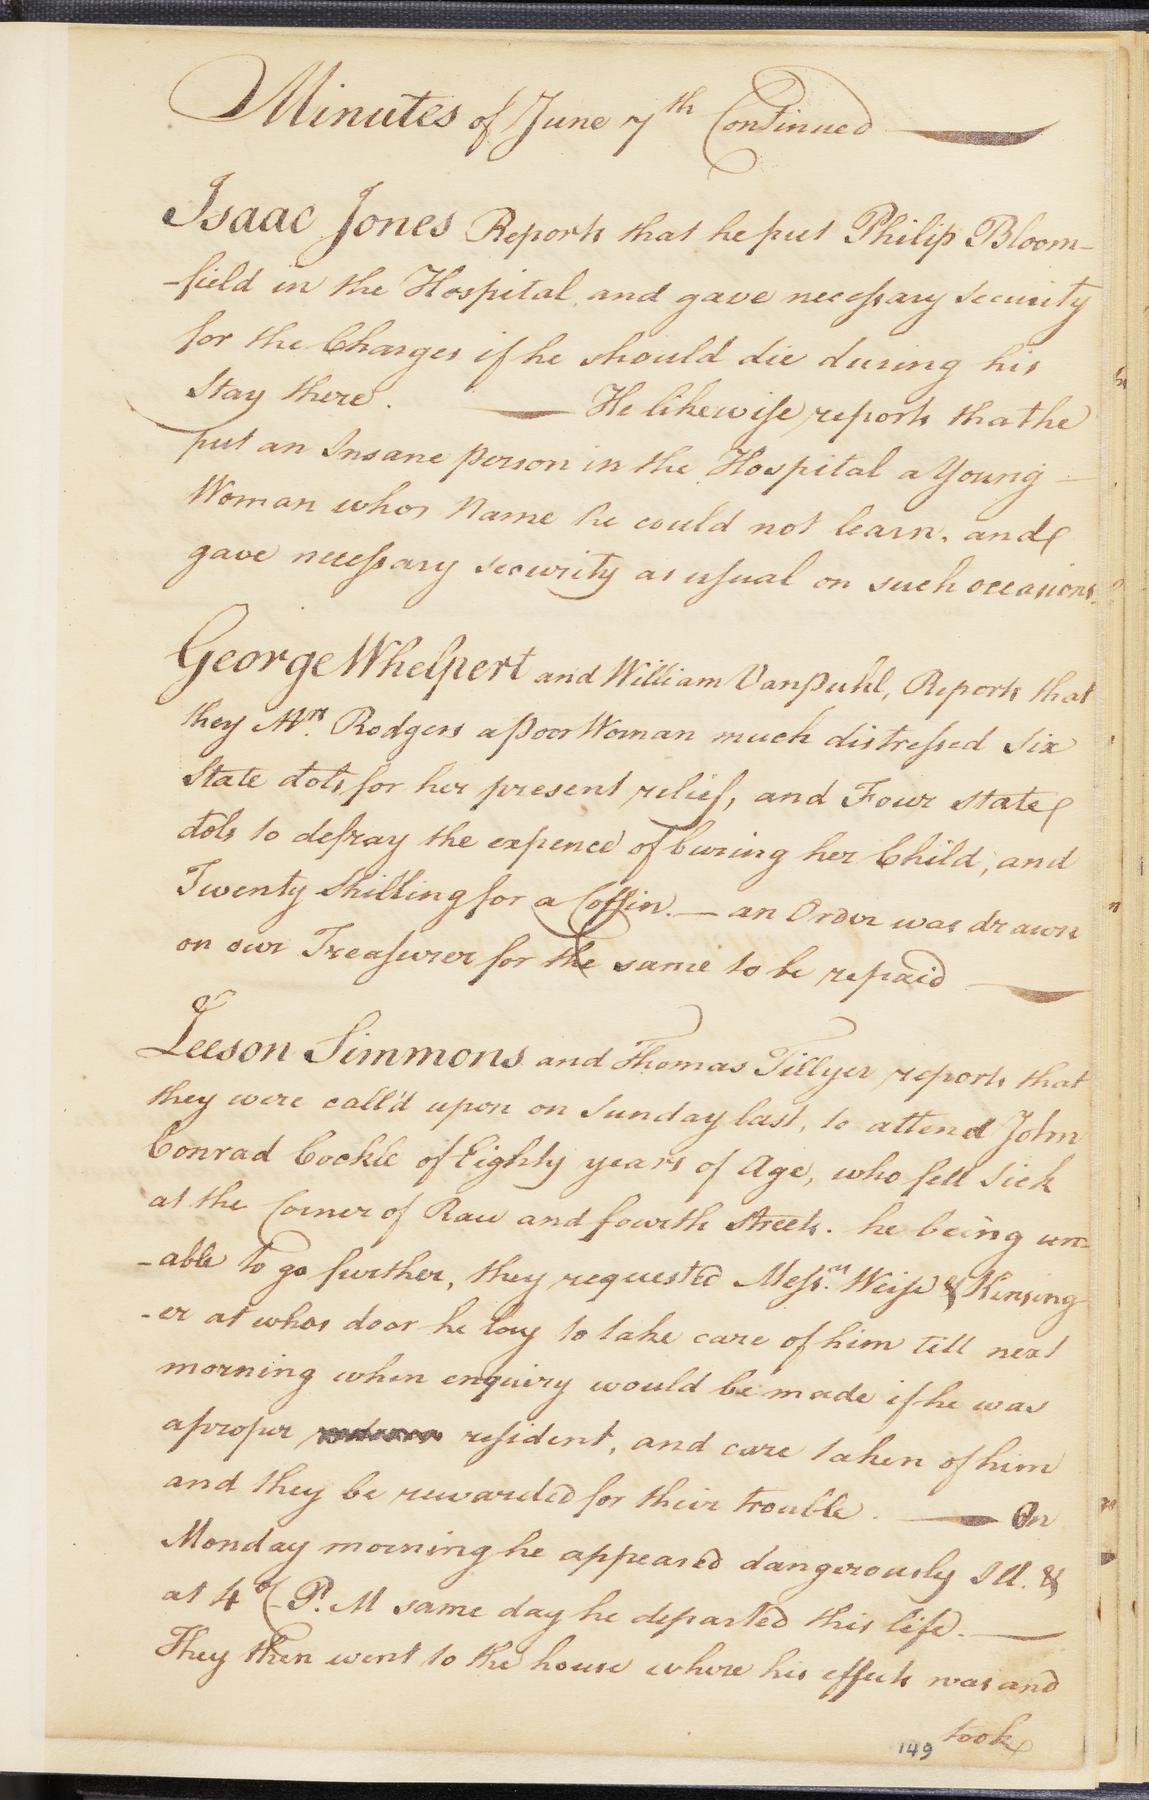 Minutes of June 7th Continued
Isaac Jones Reports that he put Philip Bloom-
-field in the Hospital and gave necessary security
for the Charges if he should die during his
Stay there. — He likewise reports that he
put an Insane person in the Hospital a Young
Woman whos Name he could not learn, and
gave necessary security as usual on such occasions.
George Whelpert and William VanPuhl, Reports that
they Mrs. Rodgers a poor Woman much distressed Six
State dols for her present relief, and Four State
dols to defray the expence of buring her Child, and
Twenty Shilling for a Coffin. — an Order was drawn
on our Treasurer for the same to be repaid
Leeson Simmons and Thomas Tillyer reports that
they were call'd upon on Sunday last, to attend John
Conrad Cockle of Eighty years of Age, who fell Sick
at the Corner of Race and fourth Streets. he being un-
-able to go further, they requested Messrs. Weise & Kensing-
-er at whos door he lay to take care of him till next
morning when enquiry would be made if he was
a proper resident, and care taken of him
and they be rewarded for their trouble. — On
Monday morning he appeared dangerously Ill. &
at 4 o'C P. M same day he departed this life. —
They then went to the house where his effects was and
took
149